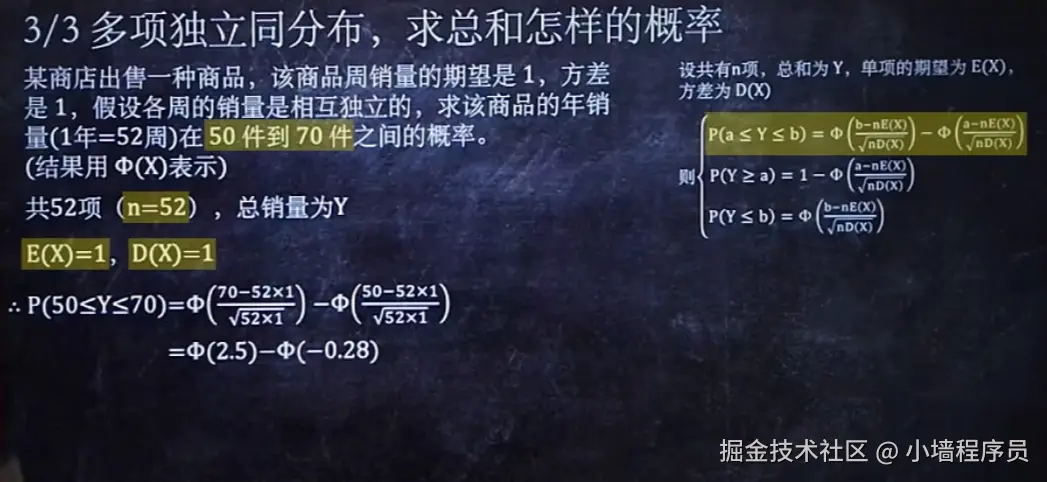 3/3 多项独立同分布，求总和怎样的概率
某商店出售一种商品，该商品周销量的期望是 1，方差
是 1，假设各周的销量是相互独立的，求该商品的年销
量(1年=52周)在 50 件到 70 件之间的概率。
(结果用 Φ(X)表示)
共52项（n=52），总销量为Y
E(X)=1，D(X)=1
∴ P(50≤Y≤70)=Φ((70−52×1)/√(52×1))−Φ((50−52×1)/√(52×1))
=Φ(2.5)−Φ(−0.28)
设共有n项，总和为 Y，单项的期望为 E(X)，
方差为 D(X)
P(a ≤ Y ≤ b) = Φ((b−nE(X))/√(nD(X))) − Φ((a−nE(X))/√(nD(X)))
则 P(Y ≥ a) = 1 − Φ((a−nE(X))/√(nD(X)))
P(Y ≤ b) = Φ((b−nE(X))/√(nD(X)))
掘金技术社区 @ 小墙程序员